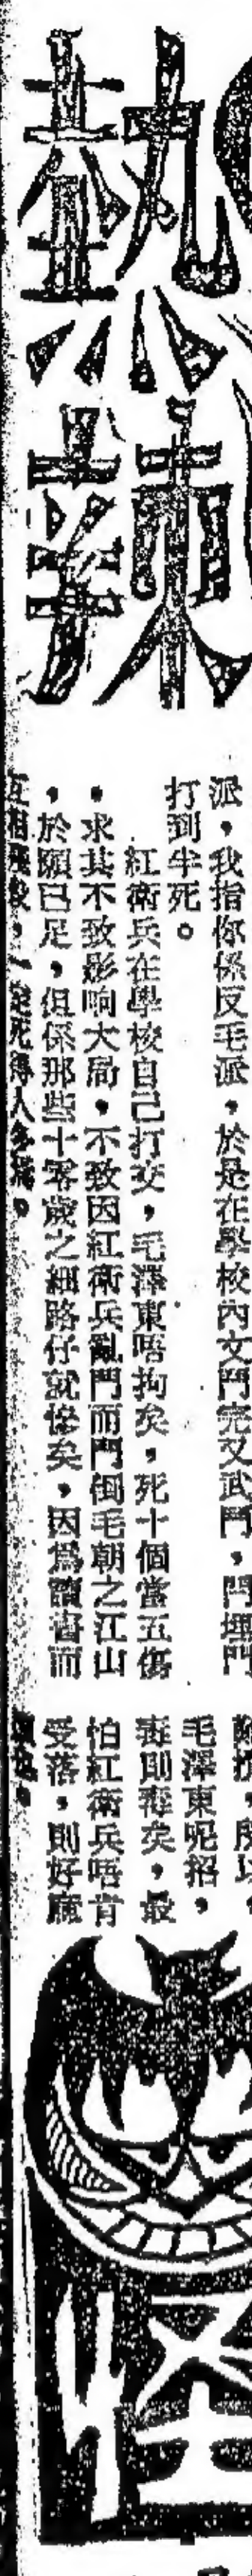 熱辣
派，我指你係反毛派，於是在學校內文鬥完又武鬥，鬥埋鬥
打到半死。
紅衞兵在學校自己打交，毛澤東唔拘矣，死十個當五傷
，求其不致影响大局，不致因紅衞兵亂鬥而鬥倒毛朝之江山
，於願已足，但係那些十零歲之細路仔就慘矣，因爲讀書而
毛澤東呢招，
毒則毒矣，最
怕紅衞兵唔肯
受落，則好
怪